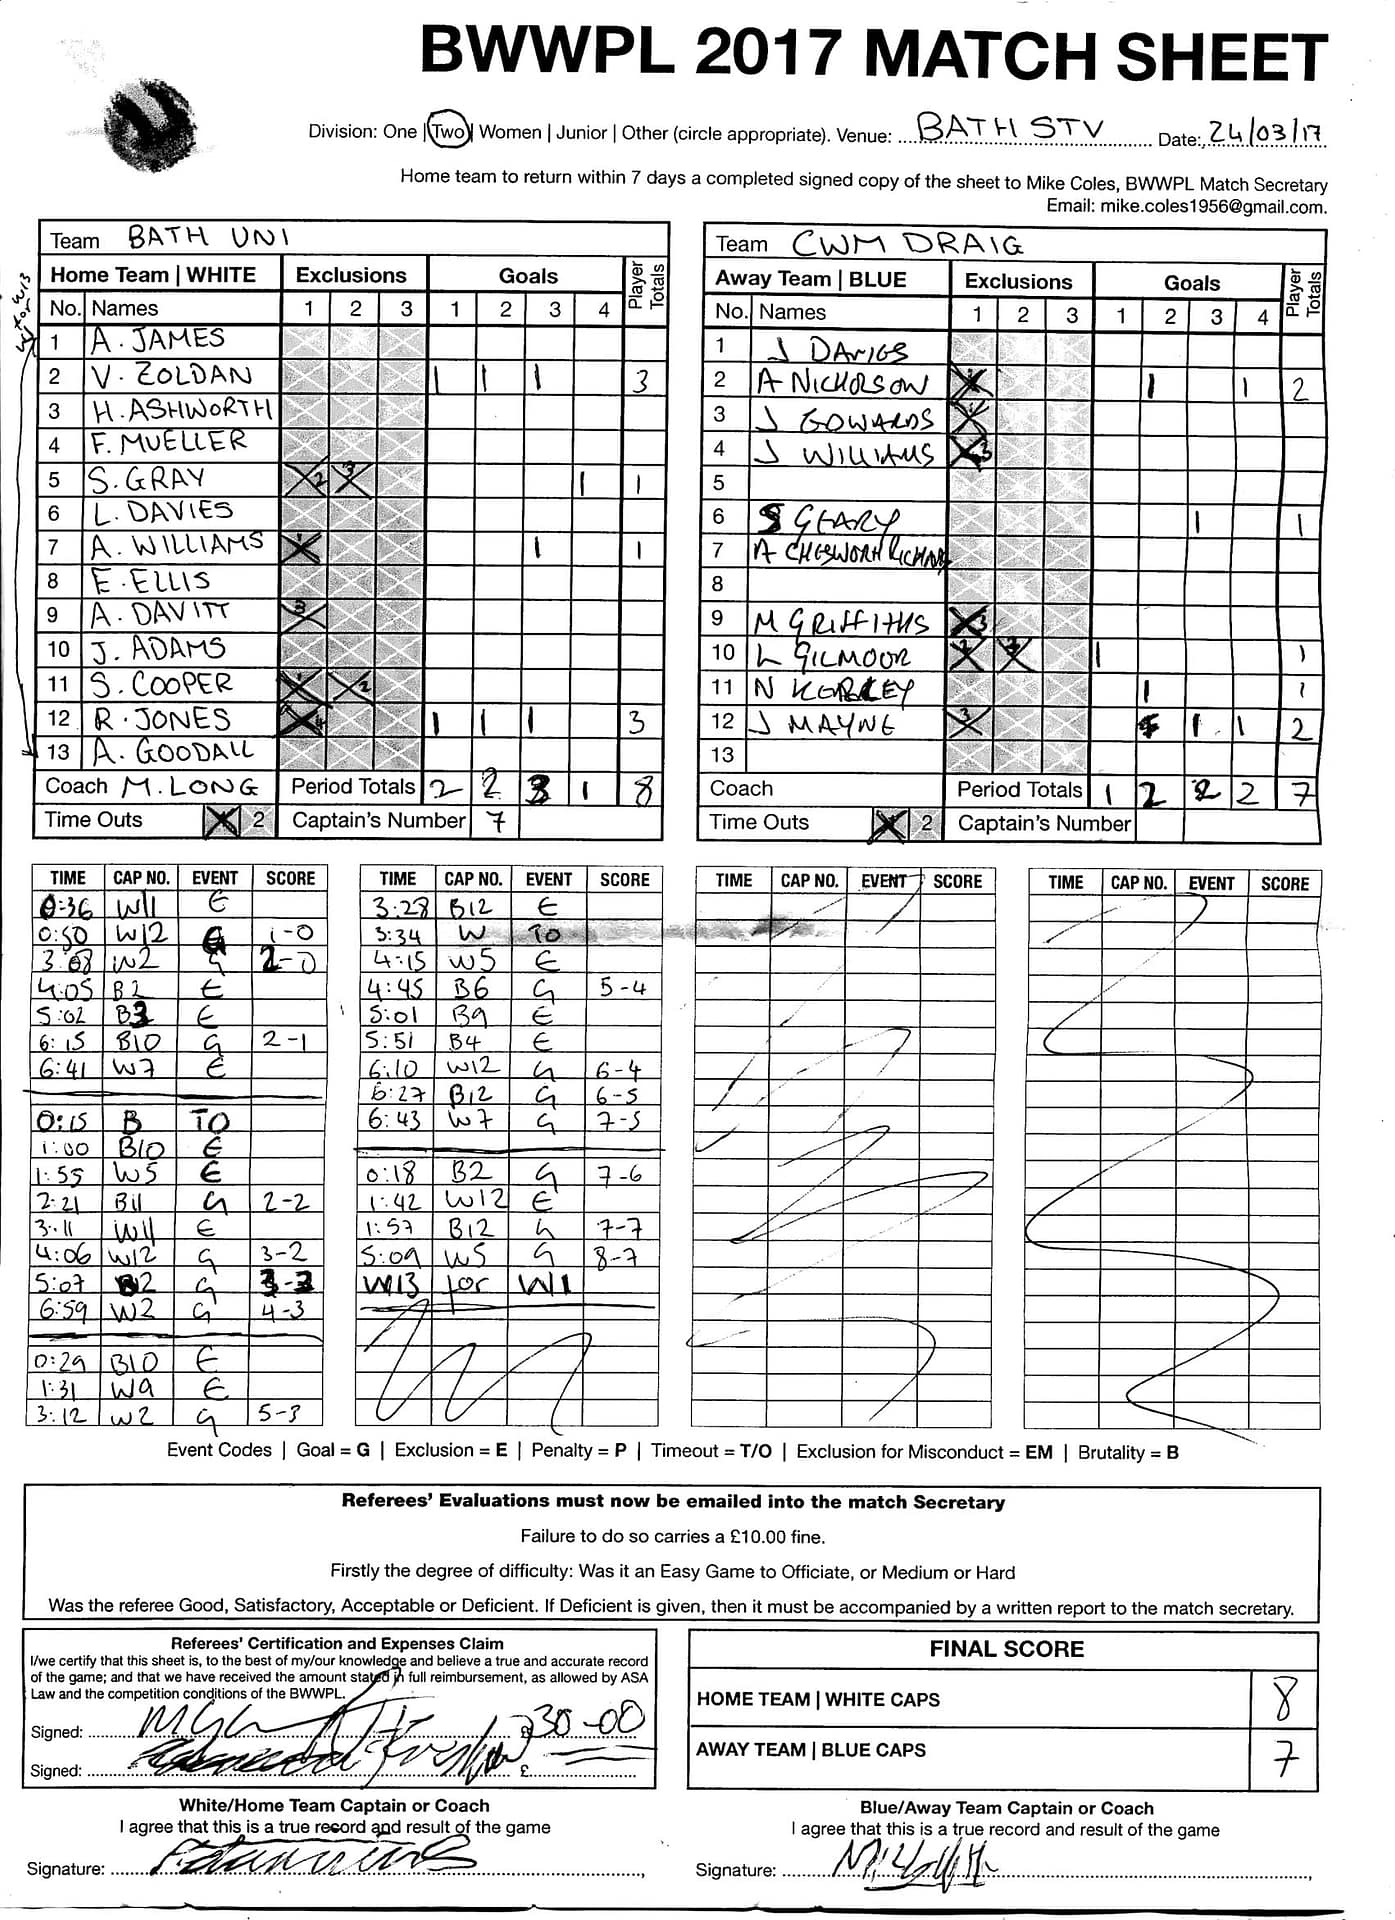 BWWPL 2017 MATCH SHEET
Division: One | Two | Women | Junior | Other (circle appropriate). Venue: BATH STV Date: 24/03/17
Home team to return within 7 days a completed signed copy of the sheet to Mike Coles, BWWPL Match Secretary
Email: mike.coles1956@gmail.com.
Team BATH UNI
Home Team | WHITE Exclusions Goals Player Totals
No. Names 1 2 3 1 2 3 4
1 A. JAMES
2 V. ZOLDAN 1 1 1 3
3 H. ASHWORTH
4 F. MUELLER
5 S. GRAY 2 3 1 1
6 L. DAVIES
7 A. WILLIAMS 1 1 1
8 E. ELLIS
9 A. DAVITT 3
10 J. ADAMS
11 S. COOPER 1 2
12 R. JONES 4 1 1 1 3
13 A. GOODALL
Coach M. LONG Period Totals 2 2 3 1 8
Time Outs 2 Captain's Number 7
Team CWM DRAIG
Away Team | BLUE Exclusions Goals Player Totals
No. Names 1 2 3 1 2 3 4
1 J DAVIES
2 A NICHOLSON 1 1 2
3 J GOWARDS
4 J WILLIAMS 3
5
6 S GEARY 1 1
7 A CHESWORTH
8
9 M GRIFFITHS 3
10 L GILMOOR 2 3 1 1
11 N KERLEY 1 1
12 J MAYNE 3 1 1 2
13
Coach Period Totals 1 2 2 2 7
Time Outs 2 Captain's Number
TIME CAP NO. EVENT SCORE
0:36 W11 E
0:50 W12 G 1-0
3:08 W2 G 2-0
4:05 B2 E
5:02 B3 E
6:15 B10 G 2-1
6:41 W7 E
0:15 B TO
1:00 B10 E
1:55 W5 E
2:21 B11 G 2-2
3:11 W11 E
4:06 W12 G 3-2
5:07 B2 G 3-3
6:59 W2 G 4-3
0:29 B10 E
1:31 W9 E
3:12 W2 G 5-3
TIME CAP NO. EVENT SCORE
3:28 B12 E
3:34 W TO
4:15 W5 E
4:45 B6 G 5-4
5:01 B9 E
5:51 B4 E
6:10 W12 G 6-4
6:27 B12 G 6-5
6:43 W7 G 7-5
0:18 B2 G 7-6
1:42 W12 E
1:57 B12 G 7-7
5:09 W5 G 8-7
W13 for W1
TIME CAP NO. EVENT SCORE
TIME CAP NO. EVENT SCORE
Event Codes | Goal = G | Exclusion = E | Penalty = P | Timeout = T/O | Exclusion for Misconduct = EM | Brutality = B
Referees' Evaluations must now be emailed into the match Secretary
Failure to do so carries a £10.00 fine.
Firstly the degree of difficulty: Was it an Easy Game to Officiate, or Medium or Hard
Was the referee Good, Satisfactory, Acceptable or Deficient. If Deficient is given, then it must be accompanied by a written report to the match secretary.
Referees' Certification and Expenses Claim
I/we certify that this sheet is, to the best of my/our knowledge and believe a true and accurate record
of the game; and that we have received the amount stated in full reimbursement, as allowed by ASA
Law and the competition conditions of the BWWPL.
Signed: £ 30-00
Signed: £
FINAL SCORE
HOME TEAM | WHITE CAPS 8
AWAY TEAM | BLUE CAPS 7
White/Home Team Captain or Coach
I agree that this is a true record and result of the game
Signature:
Blue/Away Team Captain or Coach
I agree that this is a true record and result of the game
Signature: